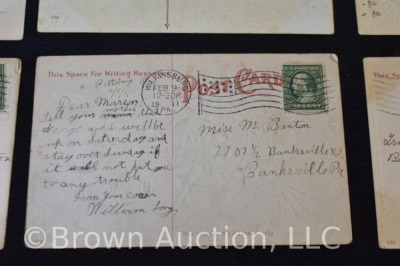 This Space For Writing Messages
POST CARD
WILKINSBURG
FEB 9
12-30P
1911
PA.
Pittsburg
Dear Maryn
Tell your mother that
and will be
up on Saturday and
stay over Sunday if
it will not put on
to any trouble.
from your cousin
William Long.
Miss M. Benton
2707 1/2 Banksville R
Banksville Pa.
© Brown Auction, LLC